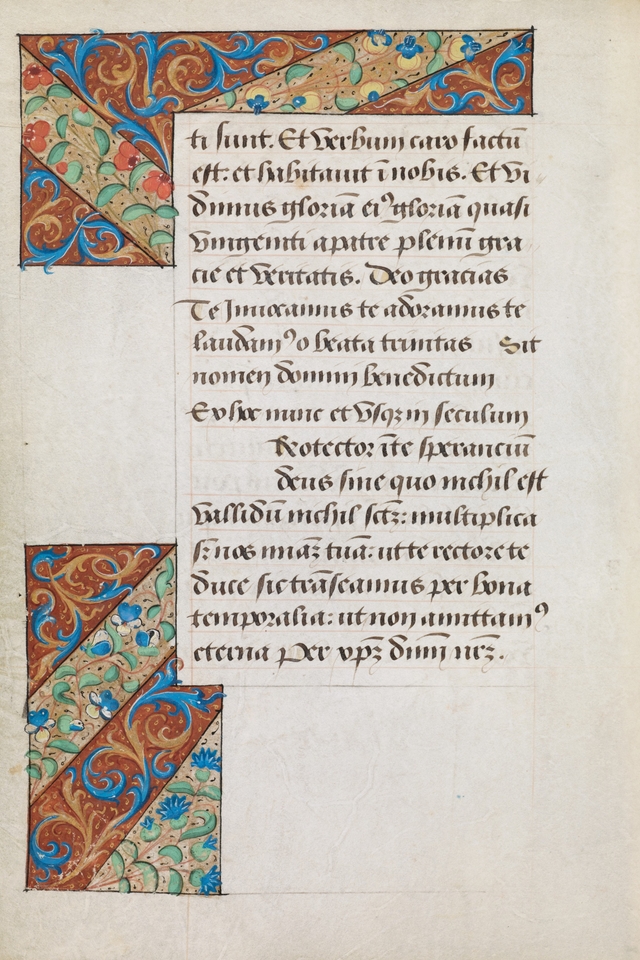 ti sunt. Et verbum caro factū
est: et habitauit ī nobis. Et vi
dimus gloriā eiꝰ gloriā quasi
vnigeniti a patre plenū gra
cie et veritatis. Deo gracias
Te Inuocamus te adoramus te
laudamꝰ o beata trinitas Sit
nomen domini benedictum
Ex hoc nunc et vsqꝫ in seculum
Rotector ī te speranciū
deus sine quo nichil est
vallidū nichil sctꝫ: multiplica
sr̄ nos miāꝫ tuā: ut te rectore te
duce sic trāseamus per bona
temporalia: ut non amittamꝰ
eterna Per xpꝫ dnm̄ nrꝫ.